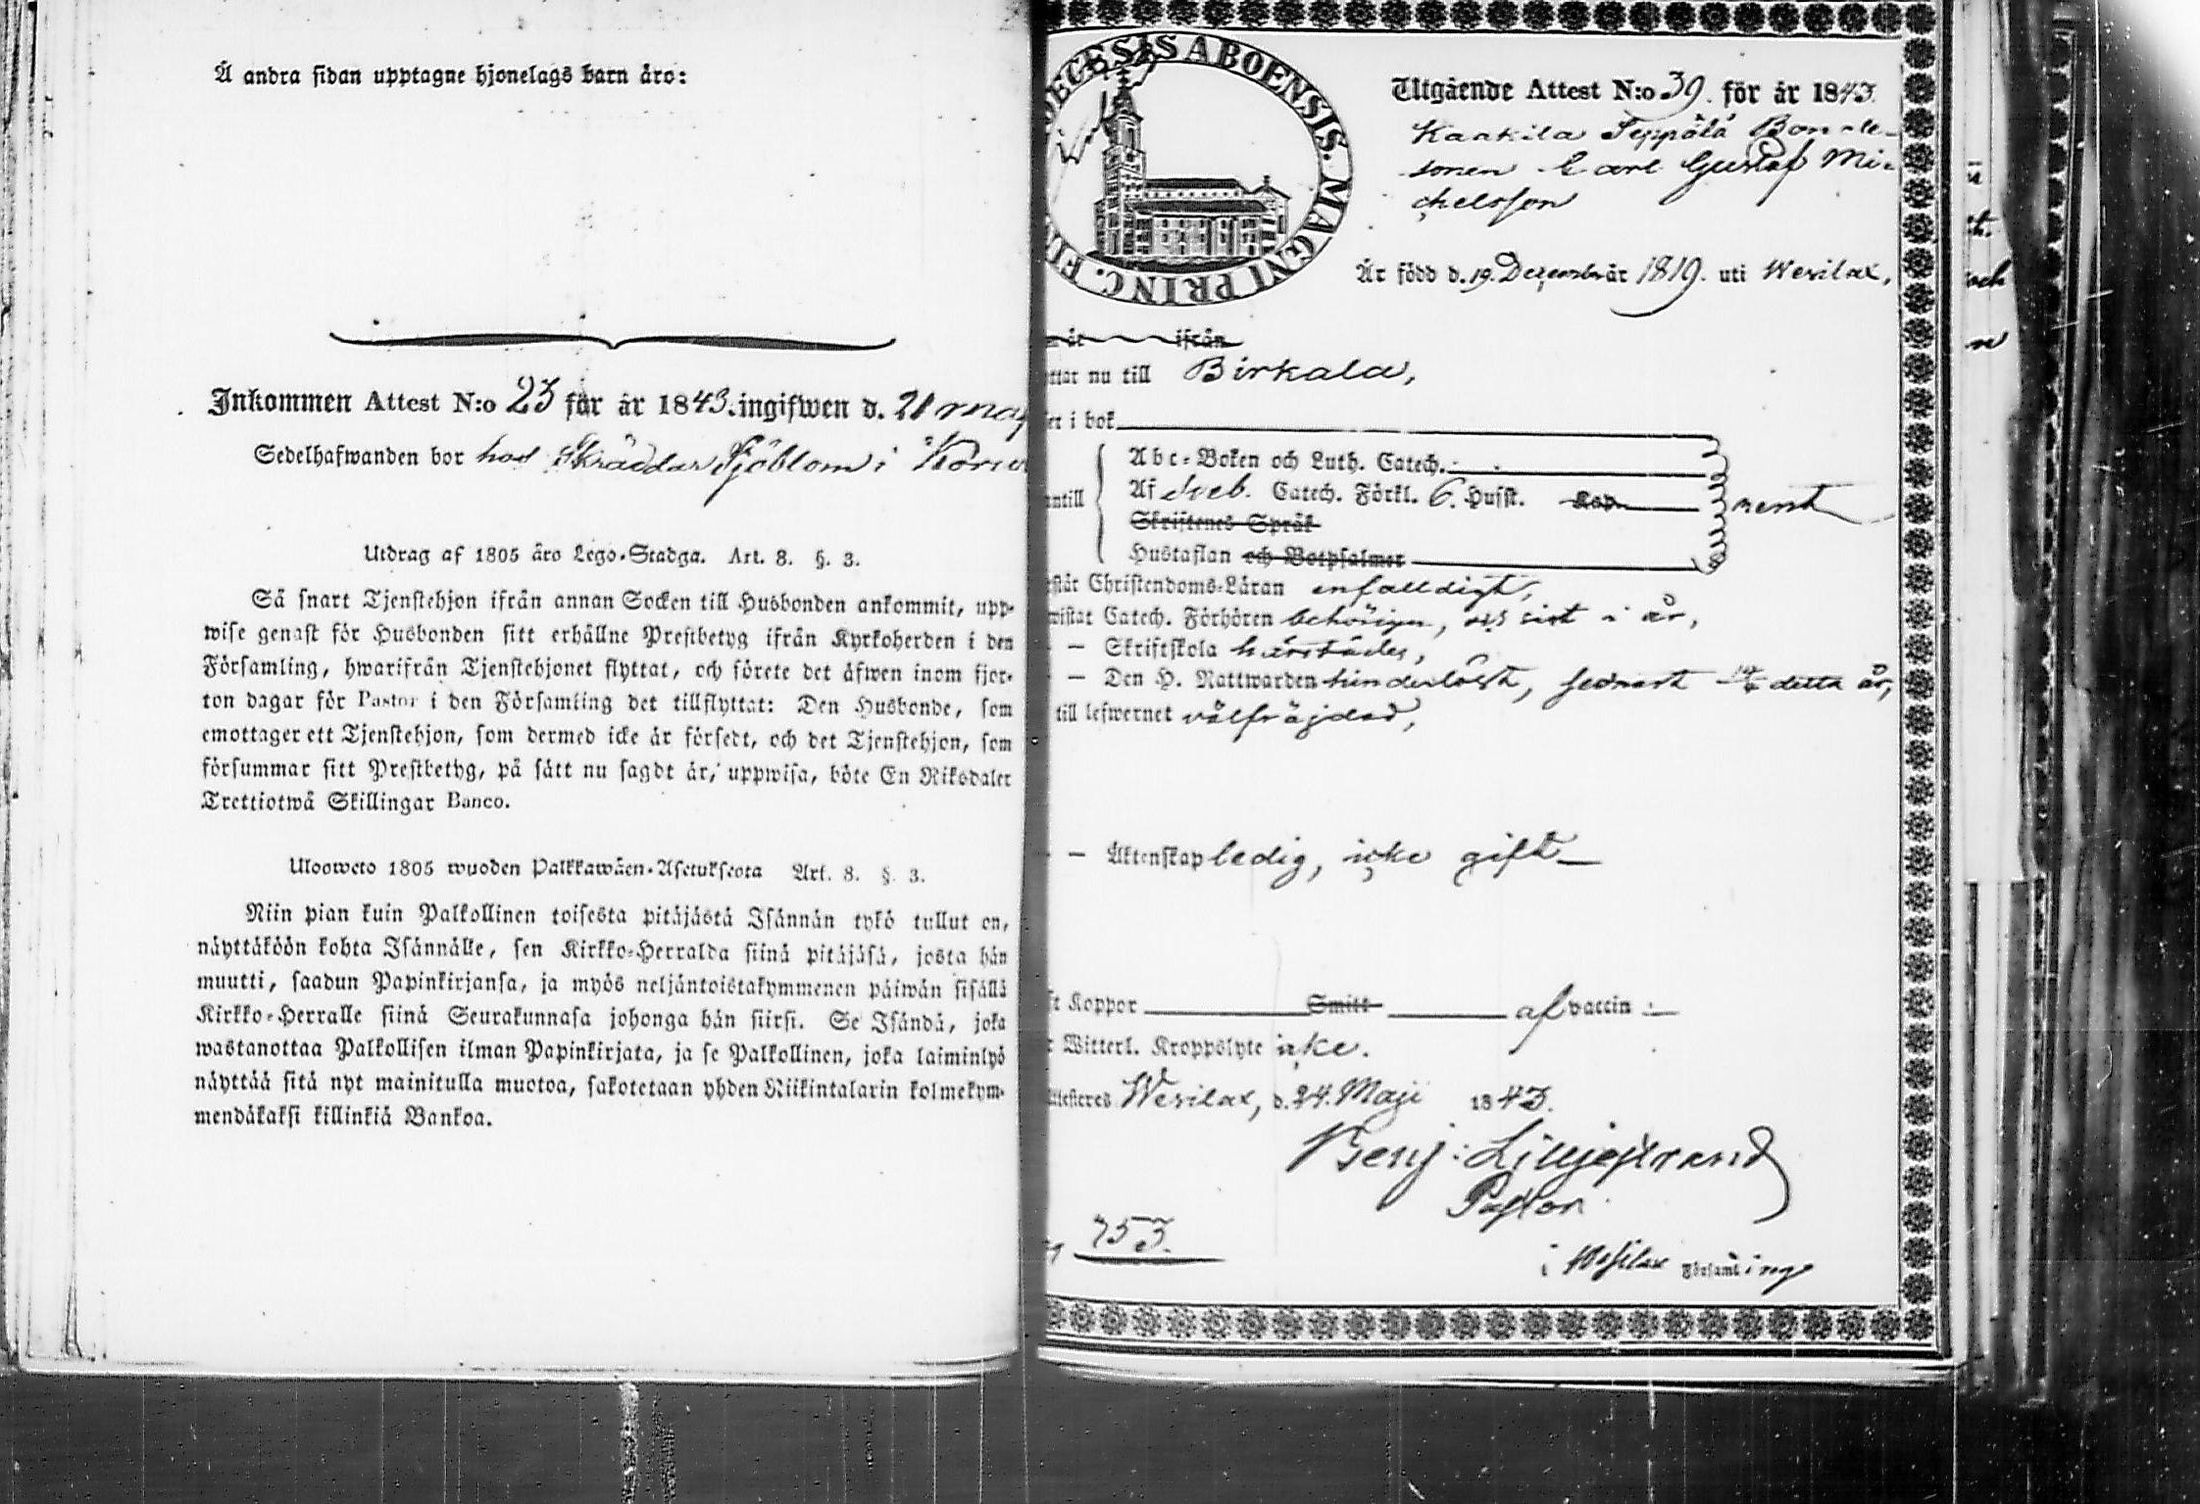 Å andra sidan upptagne hjonelags barn äro:
Inkommen Attest N:o 23 för år 1843. ingifwen d. 21
Sedelhafwanden bor hos Skräddar Sjöblom i
Utdrag af 1805 års Lego-Stadga. Art. 8. §. 3.
Så snart Tjenstehjon ifrån annan Socken till Husbonden ankommit, upp-
wise genast för Husbonden sitt erhållne Prestbetyg ifrån Kyrkoherden i den
Församling, hwarifrån Tjenstehjonet flyttat, och förete det äfwen inom fjor-
ton dagar för Pastor i den Församling det tillflyttat: Den Husbonde, som
emottager ett Tjenstehjon, som dermed icke är försedt, och det Tjenstehjon, som
försummar sitt Prestbetyg, på sätt nu sagdt är, uppwisa, böte En Riksdaler
Trettiotwå Skillingar Banco.
Uloosweto 1805 wuoden Palkkawäen-Asetuksesta Art. 8. §. 3.
Niin pian kuin Palkollinen toisesta pitäjästä Isännän tykö tullut on,
näyttäköön kohta Isännälle, sen Kirkko-Herralda siinä pitäjäsä, josta hän
muutti, saadun Papinkirjansa, ja myös neljäntoistakymmenen päiwän sisällä
Kirkko-Herralle siinä Seurakunnasa johonga hän siirsi. Se Isändä, joka
wastanottaa Palkollisen ilman Papinkirjata, ja se Palkollinen, joka laiminlyö
näyttää sitä nyt mainitulla muotoa, sakotetaan yhden Riikintalarin kolmekym-
mendäkaksi killinkiä Bankoa.
DECESIS ABOENSIS. MAGNI PRINC. FI
Utgående Attest N:o 39. för år 1843.
Kaakila Seppälä Bonde-
sonen Carl Gustaf Mi-
chelsson
Är född d. 19. December år 1819. uti Wesilax,
år ifrån
ttar nu till Birkala,
er i bok
Abc-Boken och Luth. Catech.
Af Sveb. Catech. Förkl. 6. Husst. Kap.
antill
nent
Skriftenes Språk
Hustaflan och Botpsalmer
står Christendoms-Läran enfalldigt,
wistat Catech. Förhören behörigen, sist i år,
— Skriftskola härstädes,
— Den H. Nattwarden hinderlöst, senast detta år,
till lefwernet välfräjdad,
— Äktenskap ledig, icke gift
ft Koppor Smitt af vaccin
r Witterl. Kroppslyte icke.
ttesteres Wesilax, d. 24. Maji 1843.
Benj: Liljestrand
Pastor
753.
i Wesilax Församling